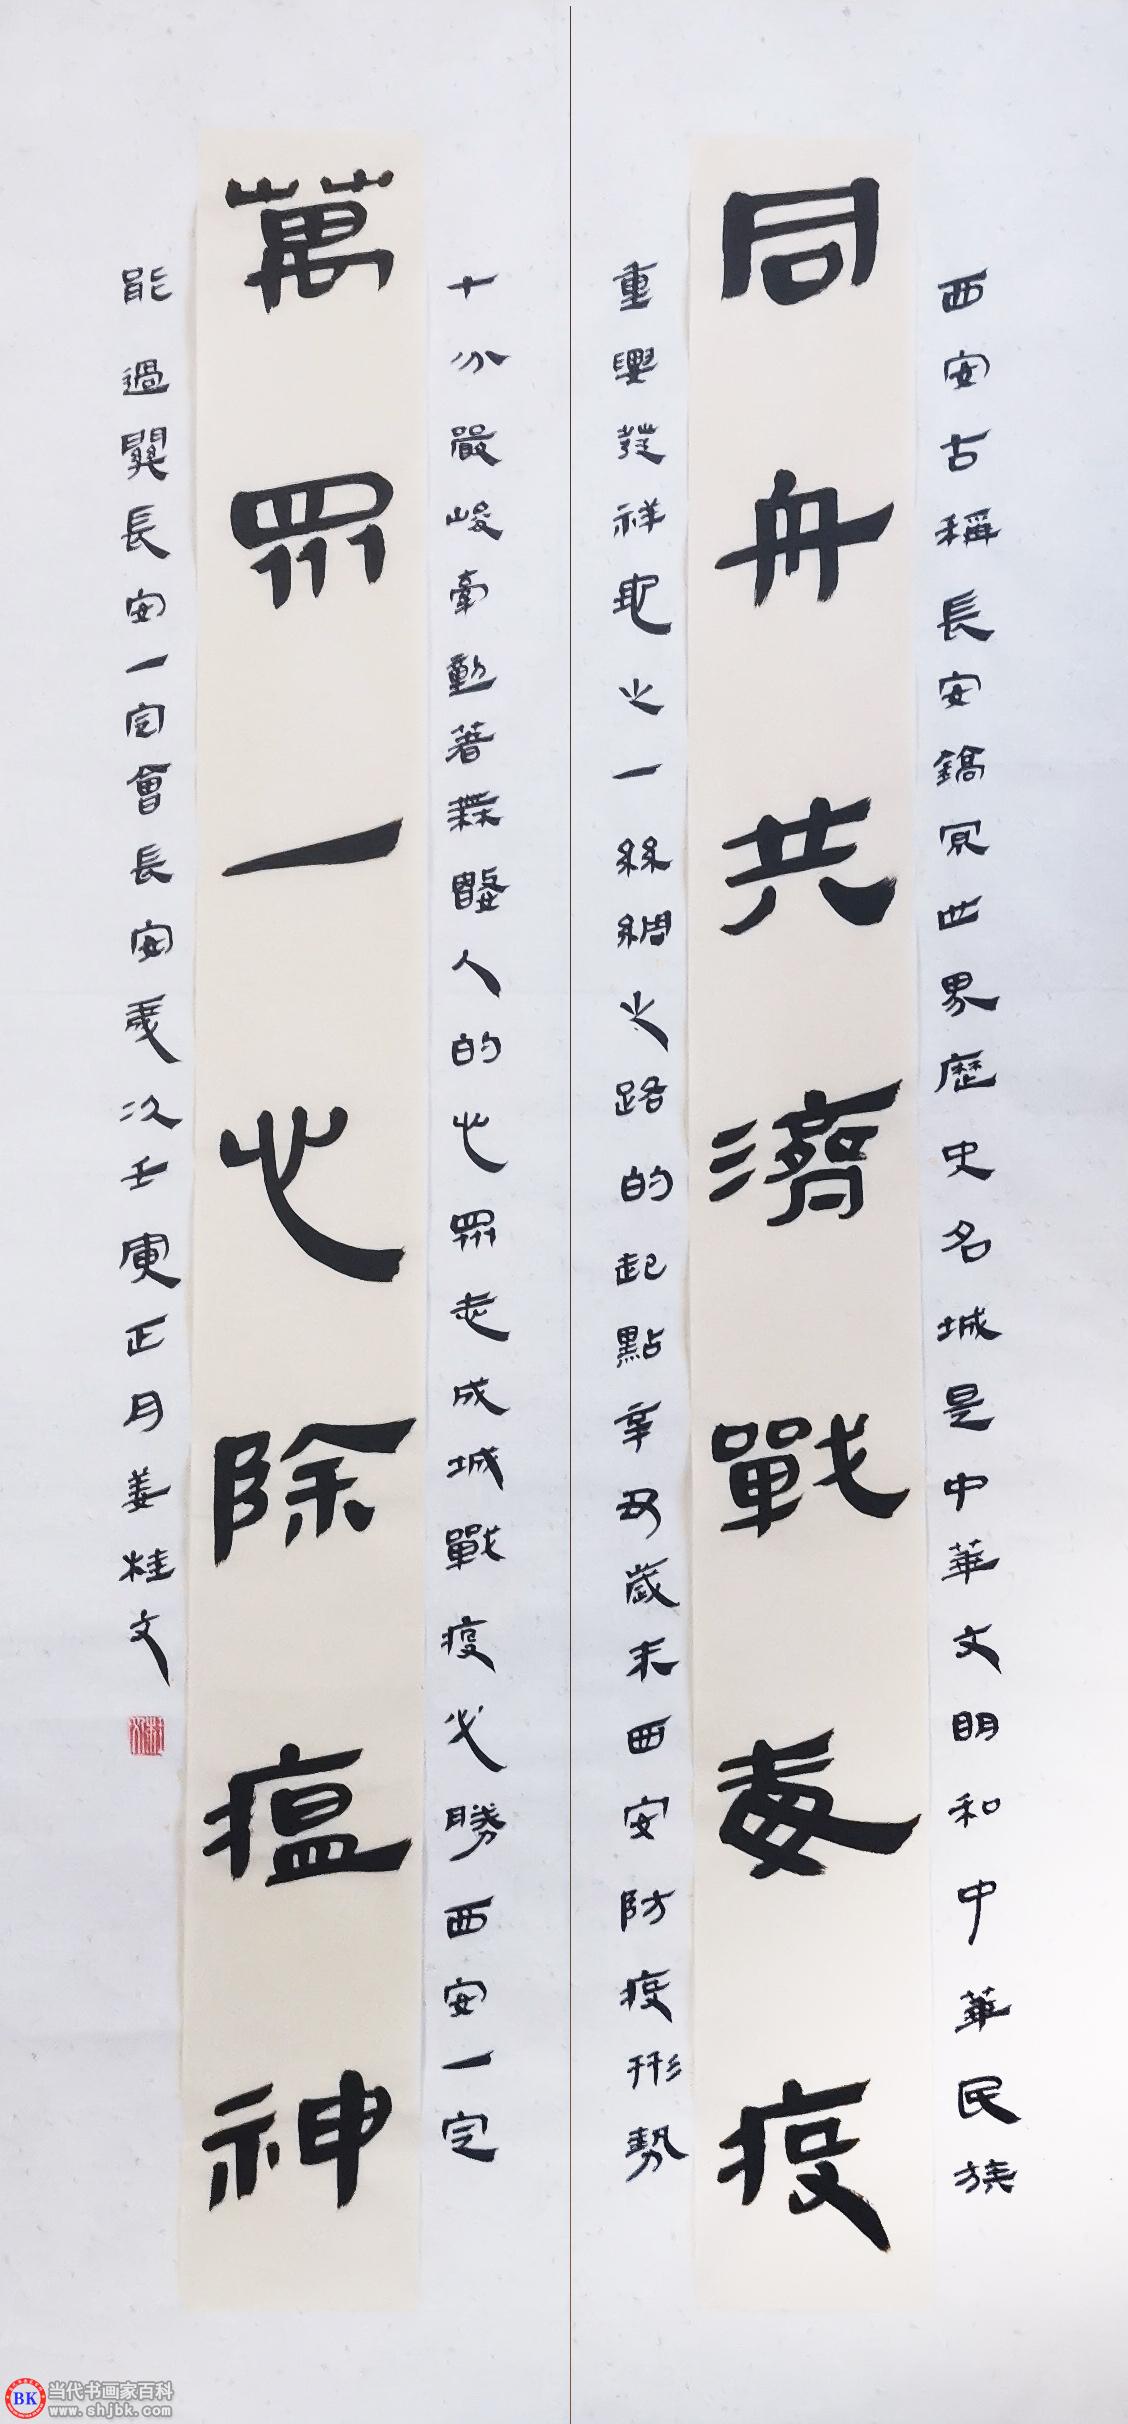 西安古稱長安鎬京世界歷史名城是中華文明和中華民族
同舟共濟戰毒疫
重興發祥地之一絲綢之路的起點辛丑歲末西安防疫形勢
十分嚴峻牽動著無數人的心眾志成城戰疫必勝西安一定
萬眾一心除瘟神
能過關長安一定會長安歲次壬寅正月姜桂文
BK 当代书画家百科
www.shjbk.com